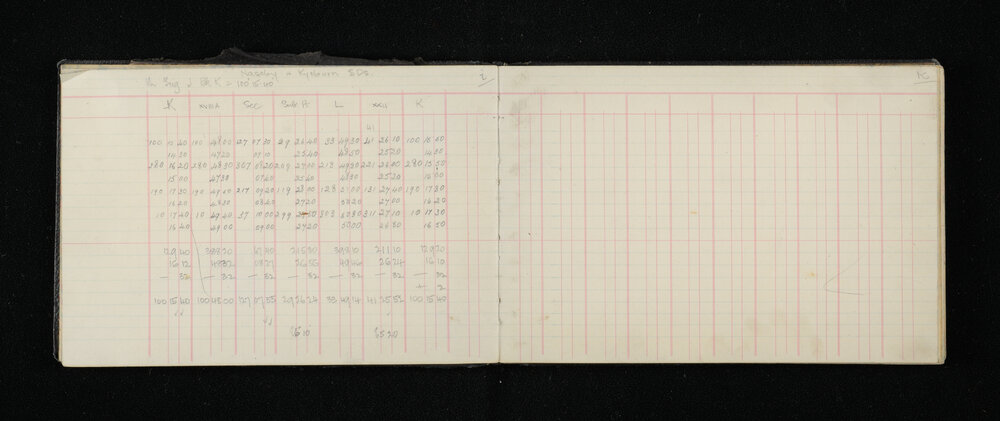 Naseby & Kyeburn SDs. 2
K XVIIIA Sec L XXII K
41
100 15 40 100 48 00 127 07 30 29 26 40 33 49 30 41 26 10 100 15 50
14 30 47 20 07 10 25 40 48 50 25 20 14 50
280 16 20 280 48 30 307 08 20 209 27 00 213 49 30 221 26 00 280 15 50
15 00 47 30 07 40 25 40 48 30 25 20 15 00
190 17 30 190 49 40 217 09 20 119 28 00 123 51 00 131 27 40 190 17 30
16 20 48 30 08 40 27 20 50 20 27 00 16 20
10 17 40 10 49 40 37 10 00 299 303 50 30 311 27 10 10 17 30
16 40 49 00 09 00 27 20 50 00 26 30 16 50
129 40 388 20 67 40 215 30 398 10 211 10 129 20
16 12 48 32 08 27 26 56 49 46 26 24 16 10
— 32 — 32 — 32 — 32 — 32 — 32 — 32
+ 2
100 15 40 100 48 00 127 07 55 29 26 24 33 49 14 41 25 52 100 15 40